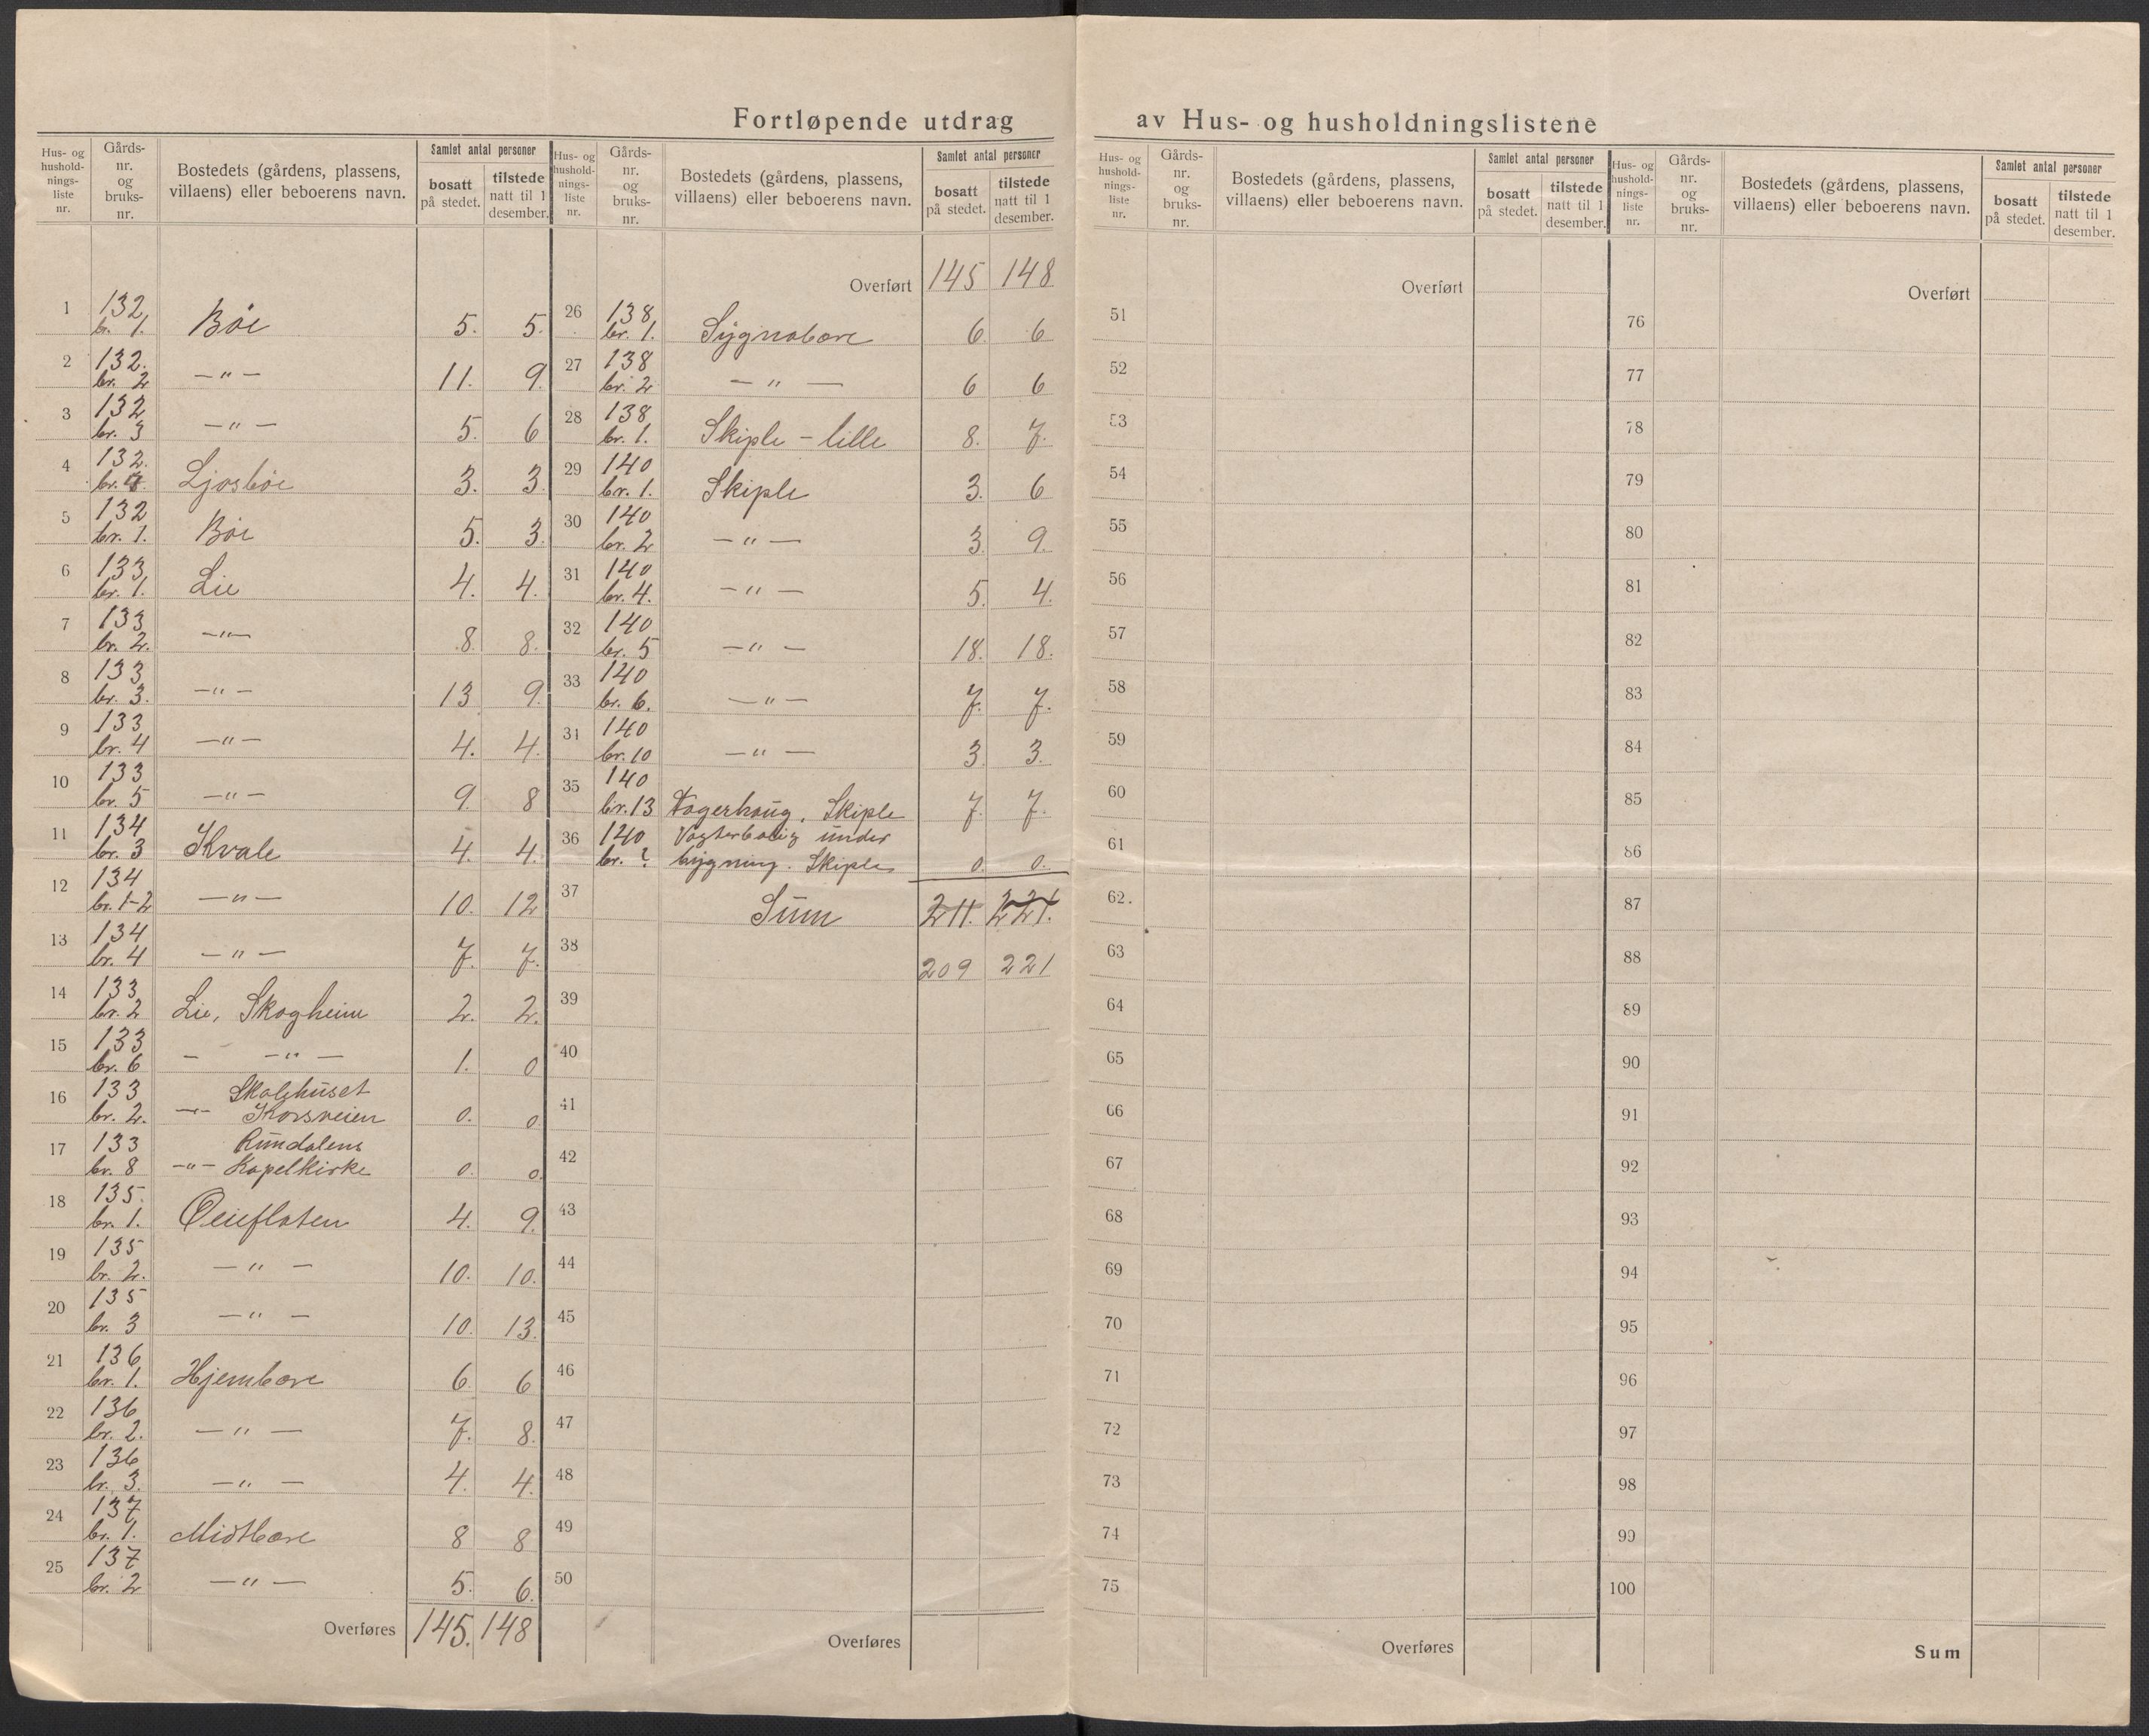 Fortløpende utdrag av Hus- og husholdningslistene
Hus- og hushold-nings-liste nr. | Gårds-nr. og bruks-nr. | Bostedets (gårdens, plassens, villaens) eller beboerens navn. | Samlet antal personer | bosatt på stedet. | tilstede natt til 1 desember.
1 | 132, br. 1. | Bøe | 5. | 5.
2 | 132. br. 2 | —"— | 11. | 9.
3 | 132 br. 3 | —"— | 5. | 6
4 | 132. br. | Ljosbøe | 3. | 3
5 | 132 br. 1. | Bøe | 5. | 3.
6 | 133 br. 1. | Lie | 4. | 4.
7 | 133 br. 2. | —"— | 8. | 8.
8 | 133 br. 3. | —"— | 13 | 9.
9 | 133 br. 4 | —"— | 4. | 4.
10 | 133 br. 5 | —"— | 9. | 8
11 | 134 br. 3 | Kvale | 4. | 4.
12 | 134 br. 1-2 | —"— | 10. | 12
13 | 134 br. 4 | —"— | 7. | 7.
14 | 133 br. 2 | Lie, Skogheim | 2. | 2.
15 | 133 br. 6 | — —"— | 1. | 0
16 | 133 br. 2. | Skolehuset
—"— Korsveien | 0. | 0
17 | 133 br. 8 | Rundalens
—"— Kapelkirke | 0. | 0
18 | 135. br. 1. | Øieflaten | 4. | 9.
19 | 135 br. 2. | —"— | 10. | 10.
20 | 135 br. 3 | —"— | 10. | 13.
21 | 136 br. 1. | Hjembøre | 6. | 6
22 | 136 br. 2. | —"— | 7. | 8.
23 | 136 br. 3. | —"— | 4. | 4.
24 | 137 br. 1. | Midtbøre | 8 | 8
25 | 137 br. 2 | —"— | 5. | 6.
Overføres | 145. | 148
Hus- og hushold-nings-liste nr. | Gårds-nr. og bruks-nr. | Bostedets (gårdens, plassens, villaens) eller beboerens navn. | Samlet antal personer | bosatt på stedet. | tilstede natt til 1 desember.
Overført | 145 | 148
26 | 138, br. 1. | Sygnabøre | 6. | 6
27 | 138 br. 2 | —"— | 6 | 6
28 | 138 br. 1. | Skiple - lille | 8. | 7.
29 | 140 br. 1. | Skiple | 3. | 6
30 | 140 br. 2 | —"— | 3. | 9.
31 | 140 br. 4. | —"— | 5. | 4.
32 | 140 br. 5 | —"— | 18. | 18.
33 | 140 br. 6. | —"— | 7. | 7.
34 | 140 br. 10 | —"— | 3. | 3.
35 | 140 br. 13 | Skiple | 7. | 7.
36 | 140 br. ? | Vogterbolig under
bygning. Skiple | 0. | 0.
37 | Sum | 211. | 221.
38 | 209 | 221
39
40
41
42
43
44
45
46
47
48
49
50
Overføres
Hus- og hushold-nings-liste nr. | Gårds-nr. og bruks-nr. | Bostedets (gårdens, plassens, villaens) eller beboerens navn. | Samlet antal personer | bosatt på stedet. | tilstede natt til 1 desember.
Overført
51
52
53
54
55
56
57
58
59
60
61
62.
63
64
65
66
67
68
69
70
71
72
73
74
75
Overføres
Hus- og hushold-nings-liste nr. | Gårds-nr. og bruks-nr. | Bostedets (gårdens, plassens, villaens) eller beboerens navn. | Samlet antal personer | bosatt på stedet. | tilstede natt til 1 desember.
Overført
76
77
78
79
80
81
82
83
84
85
86
87
88
89
90
91
92
93
94
95
96
97
98
99
100
Sum